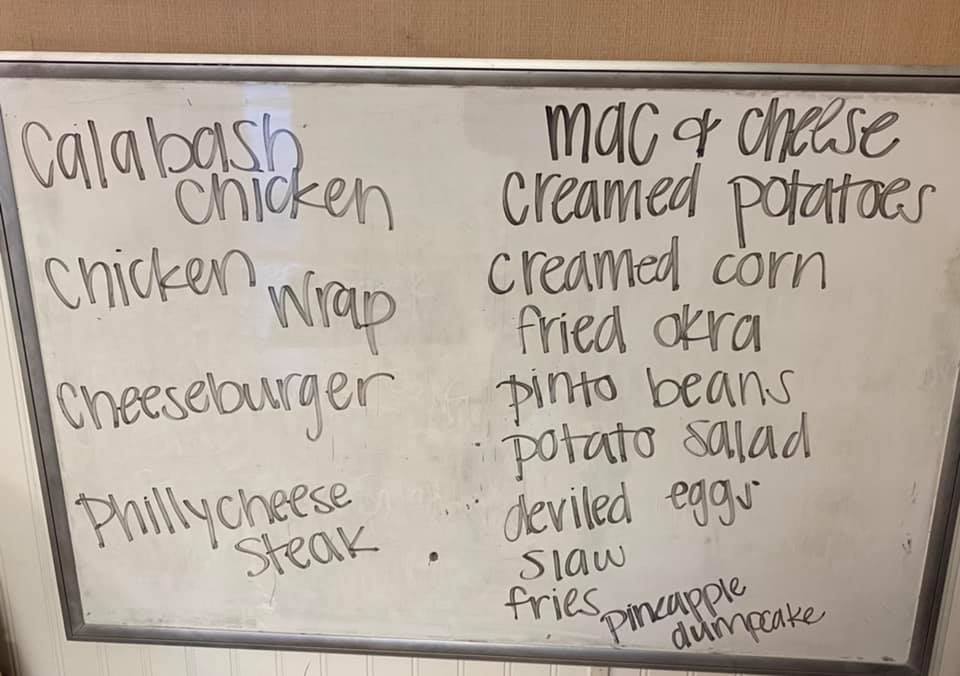 Calabash
chicken
chicken wrap
cheeseburger
Phillycheese
steak
mac & cheese
creamed potatoes
creamed corn
fried okra
pinto beans
potato salad
deviled eggs
slaw
fries
pineapple
dumpcake